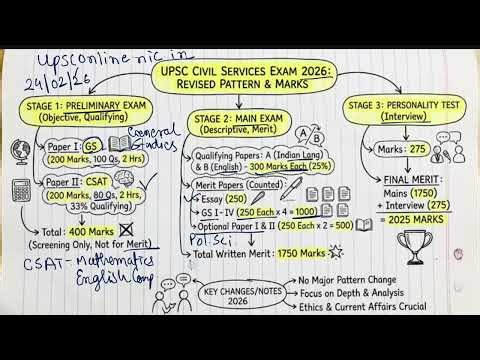 upsconline nic in
24/02/26
UPSC CIVIL SERVICES EXAM 2026:
REVISED PATTERN & MARKS
STAGE 1: PRELIMINARY EXAM
(Objective, Qualifying)
Paper I: GS
General
Studies
(200 Marks, 100 Qs, 2 Hrs)
Paper II: CSAT
(200 Marks, 80 Qs, 2 Hrs,
33% Qualifying)
Total: 400 Marks
(Screening Only, Not for Merit)
CSAT - Mathematics
English Comp
STAGE 2: MAIN EXAM
(Descriptive, Merit)
A
B
Qualifying Papers: A (Indian Lang)
& B (English) - 300 Marks Each (25%)
Merit Papers (Counted):
Essay (250)
GS I-IV (250 Each x 4 = 1000)
Optional Paper I & II (250 Each x 2 = 500)
Pol. Sci
Total Written Merit: 1750 Marks
STAGE 3: PERSONALITY TEST
(Interview)
Marks: 275
FINAL MERIT:
Mains (1750)
+ Interview (275)
= 2025 MARKS
KEY CHANGES/NOTES
2026
No Major Pattern Change
Focus on Depth & Analysis
Ethics & Current Affairs Crucial